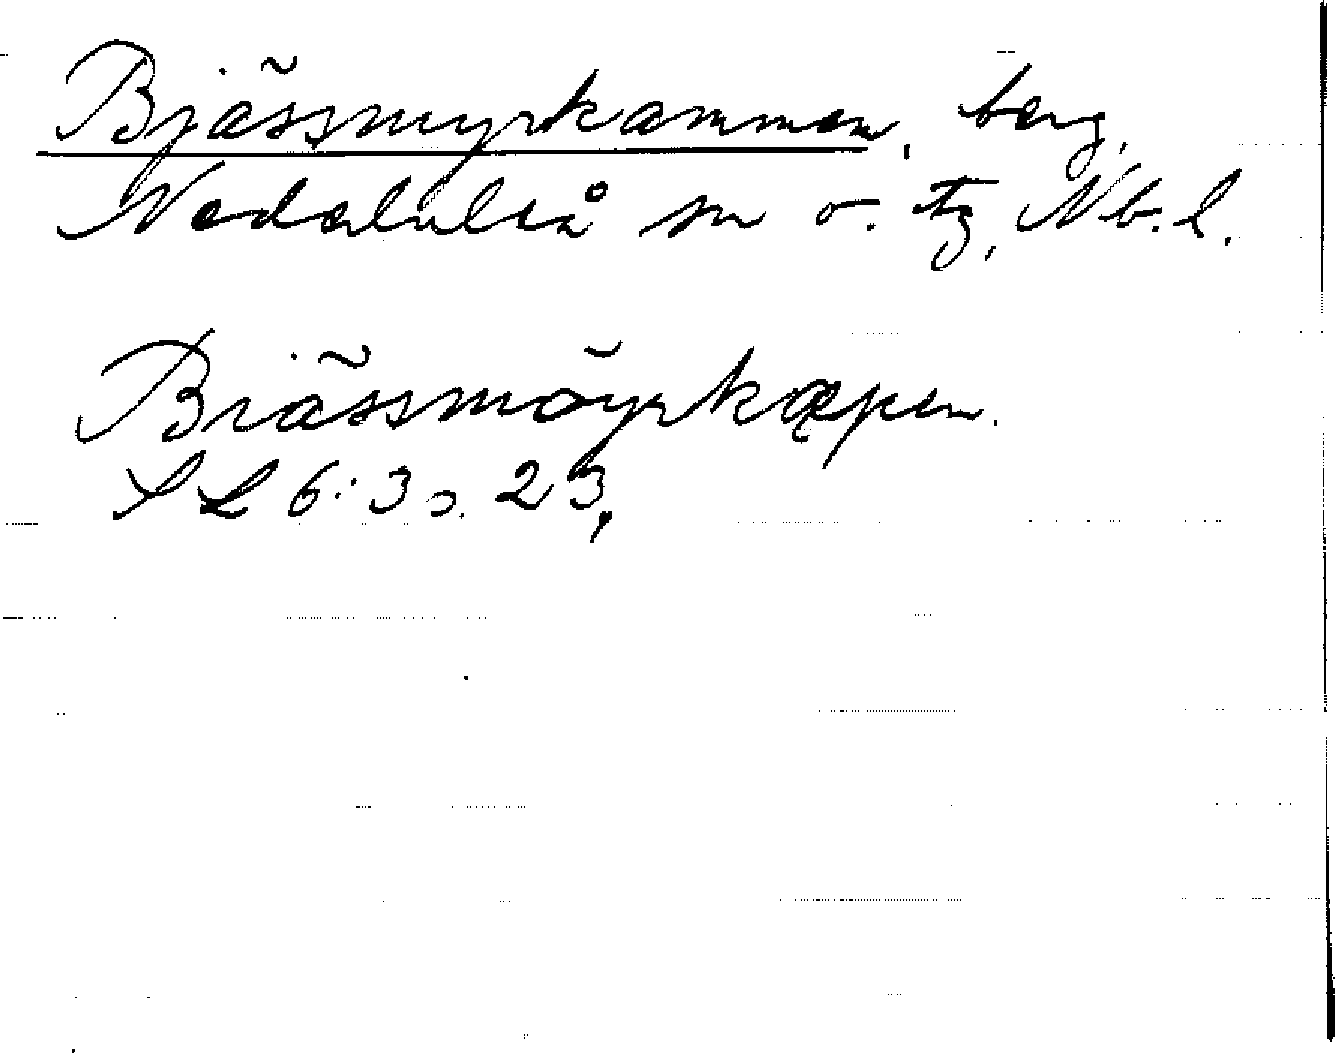 Bjässmyrkammen, berg,
Nederluleå sn o. tg, Nb. l.
Biässmöyrkæpen.
SL 6:3 s. 23.